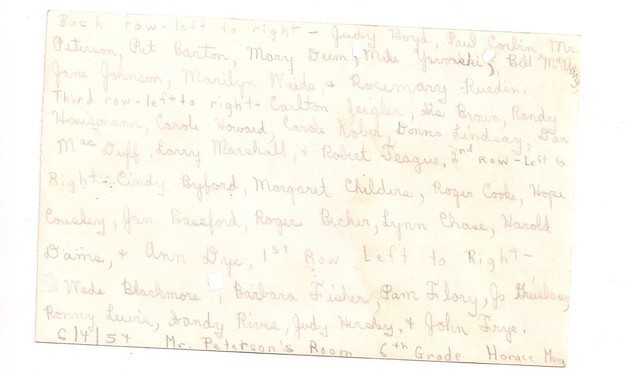 Back row - left to right - Judy Boyd, Paul Corbin, Mr.
Peterson, Pat Barton, Mary Dum, Mike Yavorski, Bill
Jane Johnson, Marilyn Waide & Rosemary Rueden.
Third row - left to right - Carlton Zeigler, Sis Brown, Randy
Hausmann, Carole Howard, Carole Kober, Donna Lindsay, Dan
Mac Duff, Larry Marshall, & Robert Teague, 2nd row - Left to
Right - Cindy Byford, Margaret Childers, Roger Cooke, Hope
Couskey, Jan Bassford, Roger Becher, Lynn Chase, Harold
Dams, & Ann Dye. 1st Row Left to Right -
Wade Blackmore, Barbara Fisher, Pam Flory, Jo
Ronny Lewis, Sandy Rives, Judy Hershey, & John Frye.
6/4/54 Mr. Peterson's Room 6th Grade Horace Mann